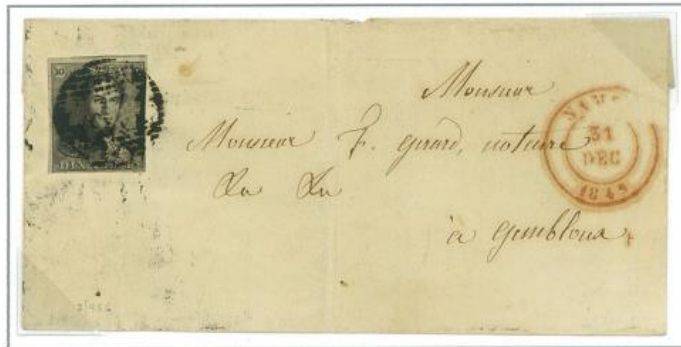 10
DIX
Monsieur
Monsieur F. Girard, notaire
à Gembloux
NAM
31
DEC
1849